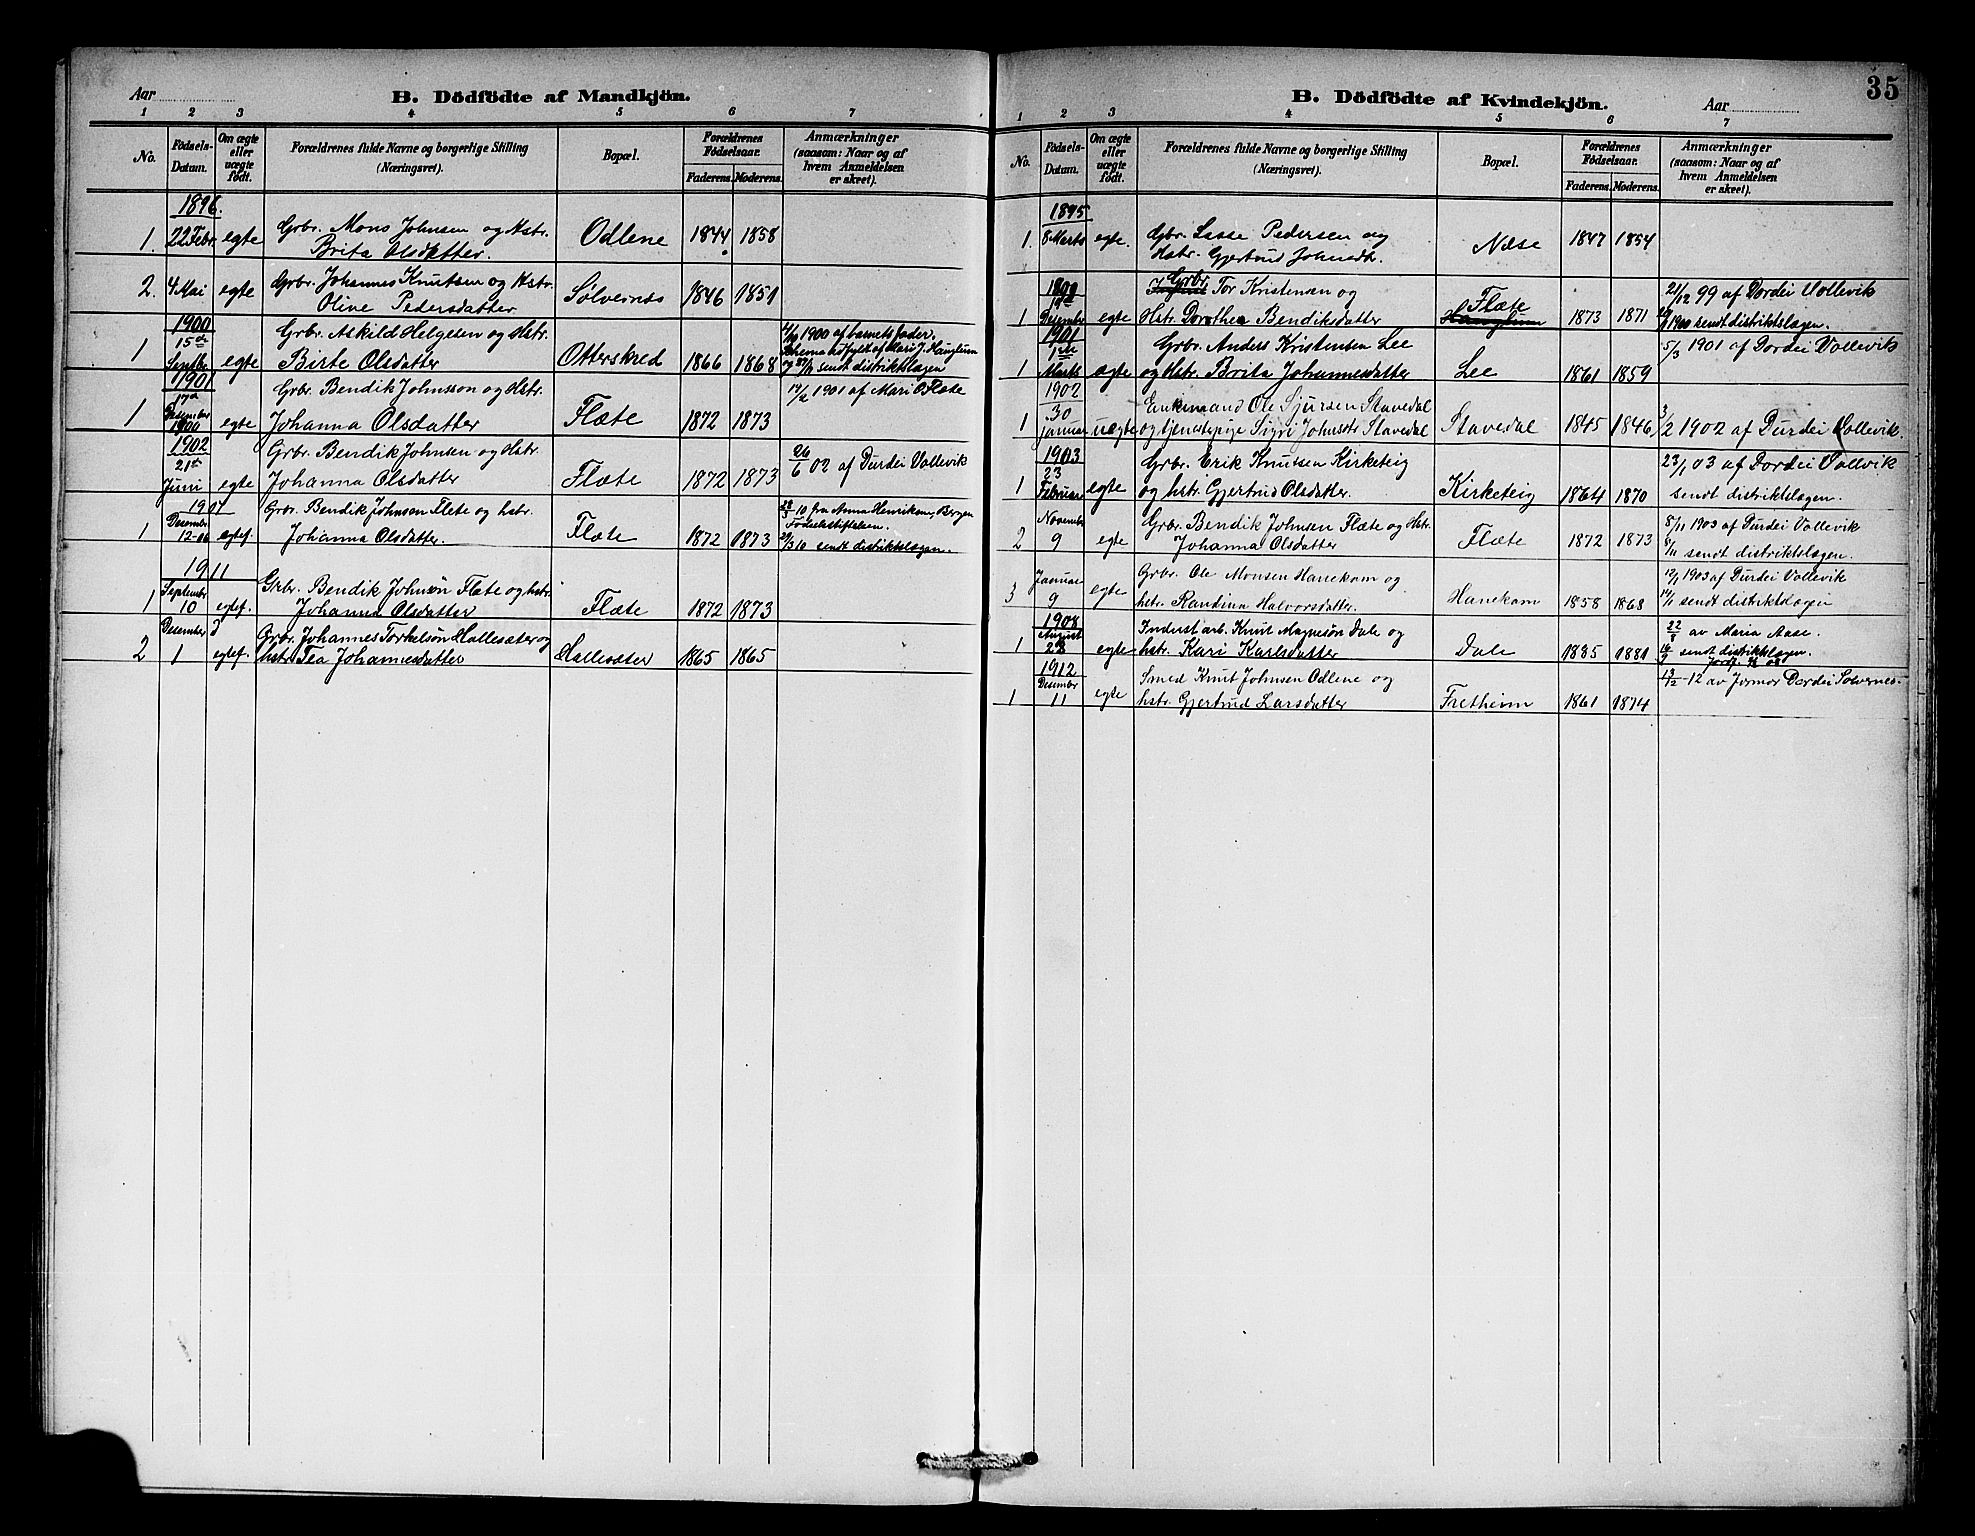 Aar
B. Dödfödte af Mandkjön.
1 2 3 4 5 6 7
No.
Födsels-Datum.
Om ægte eller uægte födt.
Forældrenes fulde Navne og borgerlige Stilling (Næringsvei).
Bopæl.
Forældrenes Födselsaar.
Faderens. Moderens.
Anmærkninger (saasom: Naar og af hvem Anmeldelsen er skeet).
1896.
1. 22 Febr. egte Grbr. Mons Johnsen og Hstr. Odlene 1844 1858
Brita Olsdatter.
2. 4 Mai egte Grbr. Johannes Knutsen og Hstr. Sølvernæs 1846 1851
Olive Pedersdatter
1900
15de Grbr. Askild Helgesen og Hstr. 1900 af barnets fader.
1 Septbr egte Birte Olsdatter Otterskred 1866 1868
sendt distriktslægen
1901
17de Grbr. Bendik Johnsson og Hstr. 17/2 1901 af Mari O Flæte
1 Desember 1900 egte Johanna Olsdatter Flæte 1872 1873
1902
21de Grbr. Bendik Johnsen og Hstr. 26/6 02 af Durdei Vollevik
Juni egte Johanna Olsdatter Flæte 1872 1873
1907
1 Desember 12-06 egtef. Grbr. Bendik Johnsen Flete og hstr. 22/3 10 fra Anna Henriksen, Bergen
Johanna Olsdatter. Flæte 1872 1873 Fødselsstiftelsen.
29/3 10 sendt distriktslægen.
1911
1 September 10 egtef. Grbr. Bendik Johnsøn Flæte og hstr.
Johanna Olsdatter Flæte 1872 1873
2 Desember 1 egtef. Grbr. Johannes Torkelsøn Hallesæter og
hstr. Tea Johannesdatter Hallesæter 1865 1865
B. Dödfödte af Kvindekjön.
Aar
35
1 2 3 4 5 6 7
No.
Födsels-Datum.
Om ægte eller uægte födt.
Forældrenes fulde Navne og borgerlige Stilling (Næringsvei).
Bopæl.
Forældrenes Födselsaar.
Faderens. Moderens.
Anmærkninger (saasom: Naar og af hvem Anmeldelsen er skeet).
1895
1. 8 Marts egte. Gbr. Lasse Pedersen og Næse 1847 1854
Hstr. Gjertrud Johnsdt.
1899
Grbr. Tor Kristensen og Flæte 21/12 99 af Dordei Vollevik
1 Desember egte Hstr. Dorothea Bendiksdatter Hauglum 1873 1871 1900 sendt distriktslægen.
1901
1ste Grbr. Anders Kristensen Lee 5/3 1901 af Dordei Vollevik
1 Marts ægte og Hstr. Brita Johannesdatter Lee 1861 1859
1902
30 Enkemand Ole Sjursen Stavedal
1 januar uegte og tjenestepige Sigri Johnsdtr Stavedal Stavedal 1845 1846 3/2 1902 af Durdei Vollevik.
1903
23 Grbr. Erik Knutsen Kirketeig 23/1 03 af Dordei Vollevik
1 Februar egte og hstr. Gjertrud Olsdatter. Kirketeig 1864 1870 sendt distriktslægen.
November Grbr. Bendik Johnsen Flæte og Hstr. 8/11 1903 af Durdei Vollevik
2 9 egte Johanna Olsdatter Flæte 1872 1873 8/11 sendt distriktslægen.
Januar Grbr. Ole Monsen Hanekam og 12/1 1903 af Durdei Vollevik
3 9 egte hstr. Randina Halvorsdatter. Hanekam 1858 1868 14/1 sendt distriktslægen
1908
August Inderst arb. Knut Magnesøn Dale og 22/8 av Maria Aase.
1 28 egte hstr. Kari Karlsdatter Dale 1835 1881 sendt distriktslægen.
1912
Desember Smed Knut Johnsen Odlene og 13/12-12 av Jormor Dordei Solvernes.
1 11 egte hstr. Gjertrud Larsdatter Fretheim 1861 1874